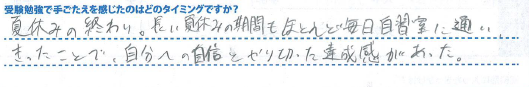 受験勉強で手ごたえを感じたのはどのタイミングですか?
夏休みの終わり。長い夏休みの期間もほとんど毎日自習室に通い、
きったことで、自分への自信とやり切った達成感があった。